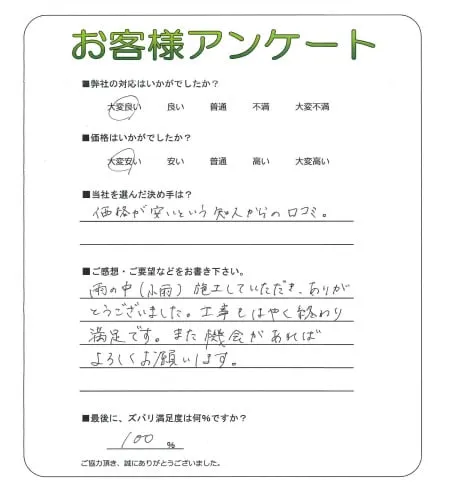 お客様アンケート
■弊社の対応はいかがでしたか？
大変良い 良い 普通 不満 大変不満
■価格はいかがでしたか？
大変安い 安い 普通 高い 大変高い
■当社を選んだ決め手は？
価格が安いという知人からの口コミ。
■ご感想・ご要望などをお書き下さい。
雨の中（小雨）施工していただき、ありが
とうございました。工事もはやく終わり
満足です。また機会があれば
よろしくお願いします。
■最後に、ズバリ満足度は何%ですか？
100 %
ご協力頂き、誠にありがとうございました。